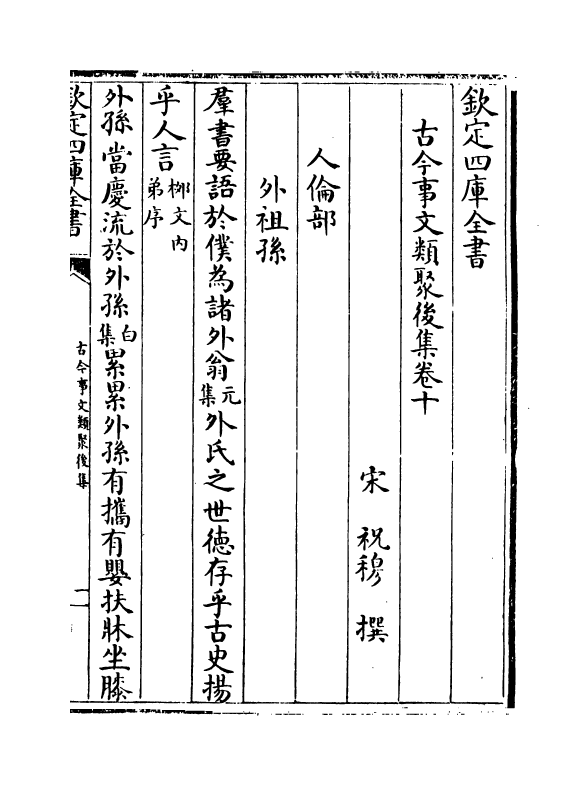 欽定四庫全書
古今事文類聚後集卷十
宋 祝穆 撰
人倫部
外祖孫
羣書要語於僕為諸外翁元集外氏之世德存乎古史揚
乎人言柳文內弟序
外孫當慶流於外孫白集累累外孫有攜有嬰扶牀坐膝
欽定四庫全書
古今事文類聚後集